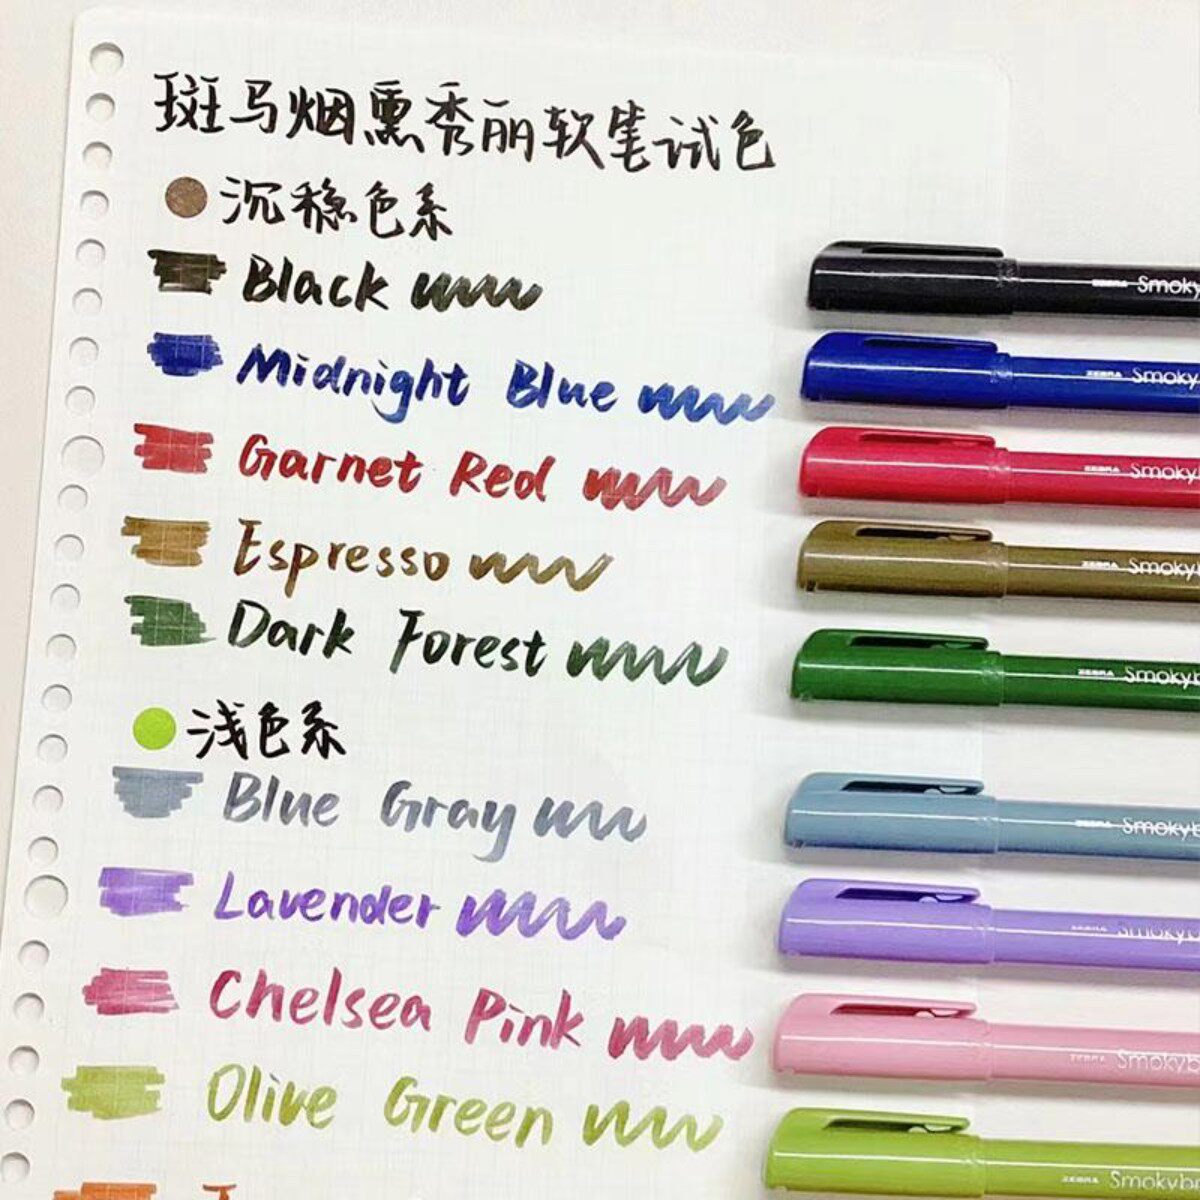 斑马烟熏秀丽软笔试色
沉稳色系
Black
ZEBRA Smoky
Midnight Blue
ZEBRA Smoky
Garnet Red
ZEBRA Smoky
Espresso
ZEBRA Smoky
Dark Forest
ZEBRA Smokyb
浅色系
Blue Gray
ZEBRA Smokyb
Lavender
ZEBRA Smokyb
Chelsea Pink
ZEBRA Smokyb
Olive Green
ZEBRA Smokybr